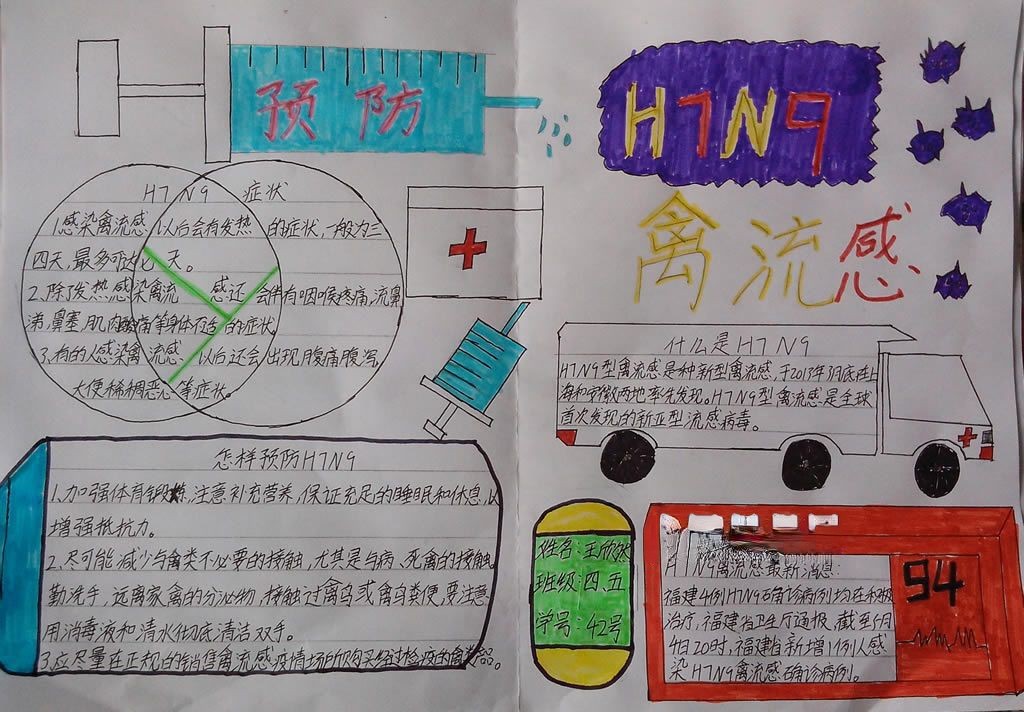 预防
H7N9 症状
1.感染禽流感,以后会有发热的症状,一般为三
四天,最多可达七天。
2.除了发热感染禽流感还会伴有咽喉疼痛,流鼻
涕,鼻塞,肌肉酸痛等身体不舌的症状。
3.有的人感染禽流感以后还会出现腹痛腹泻,
大便稀稠恶等症状。
怎样预防H7N9
1、加强体育锻炼,注意补充营养,保证充足的睡眠和休息,以
增强抵抗力。
2、尽可能减少与禽类不必要的接触,尤其是与病、死禽的接触。
勤洗手,远离家禽的分泌物,接触过禽鸟或禽鸟粪便,要注意
用消毒液和清水彻底清洁双手。
3、应尽量在正规的销售禽流感疫情场所购买经过检疫的禽类
H7N9
禽流感
什么是H7N9
H7N9型禽流感是种新型禽流感,于2013年3月底在上
海和安徽两地率先发现。H7N9型禽流感是全球
首次发现的新亚型流感病毒。
姓名:王欣然
班级:四、五
学号:42号
H7N9禽流感最新消息:
福建4例H7N9确诊病例均在积极
治疗,福建省卫生厅通报,截至5月
4日20时,福建省新增1例人感
染H7N9禽流感确诊病例。
94